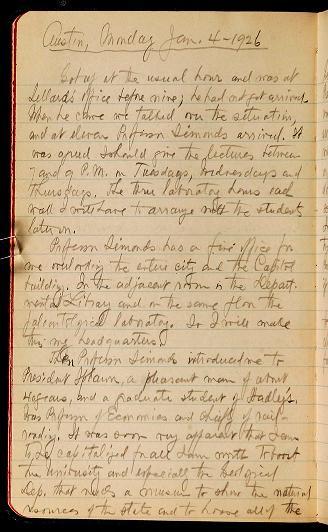 Austin, Monday Jan. 4-1926
Got up at the usual hour and was at
Sellards' office before nine; he had not yet arrived.
When he came we talked over the situation,
and at eleven Professor Simonds arrived. It
was agreed I should give the lectures between
7 and 9 P.M. on Tuesdays, Wednesdays and
Thursdays. The three laboratory hours each
week I will have to arrange with the students
later on.
Professor Simonds has a fine office for
me overlooking the entire city and the Capitol
building. In the adjacent room is the Depart-
mental Library and on the same floor the
paleontological laboratory. So I will make
this my headquarters.
Then Professor Simonds introduced me to
President Splawn, a pleasant man of about
years, and a graduate student of Hadley's.
Was Professor of Economics and chiefly of rail-
roading. It was soon very apparent that I am
to be capitalized for all I am worth to boost
the University and especially the Geological
Dep. that needs a museum to show the natural
resources of the state and to house all of the